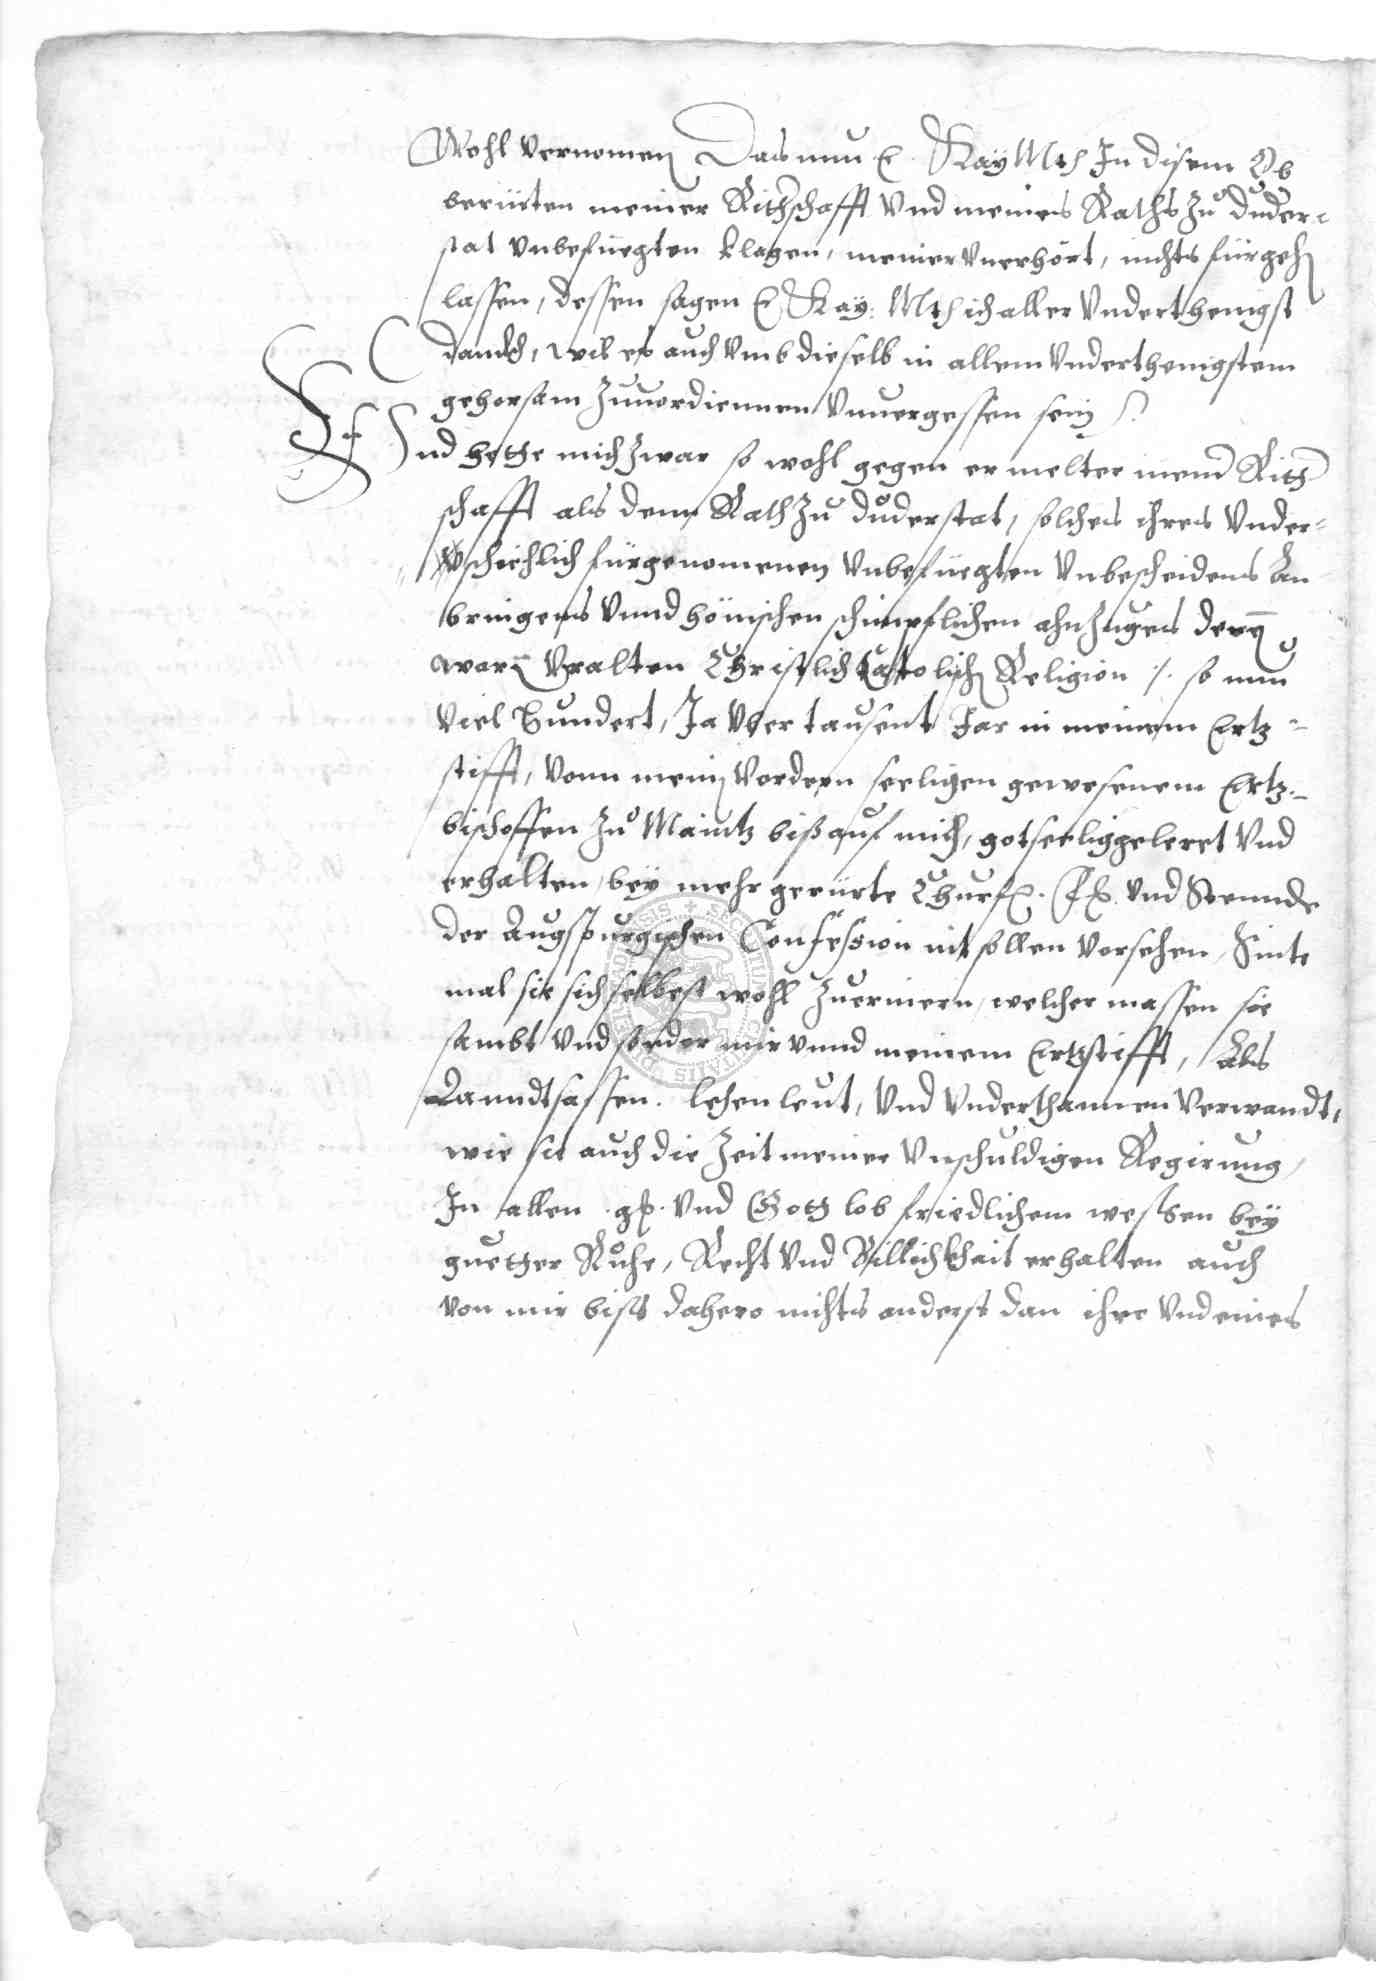 Wohl vernomen Das nun E. Kay Mtt In disem Ob
berürten meiner Ritterschafft vnd meines Raths zu Duder-
stat vnbefuegten klagen, meiner vnerhört, nichts fürgehn
lassen, dessen sagen E. Kay: Mtt ich aller vnderthenigst
danckh, wil es auch vmb dieselb in allem vnderthenigstem
gehorsam zuuordiennen vnuergessen sein
Vnd hette mich zwar so wohl gegen ermelter meiner Ritter
schafft als dem Rath zu Duderstat, solches ihres vnder-
schiehlich fürgenomenen vnbefuegten vnbescheidens An-
bringens vnnd hönischen schimpflichen ahnzuges deren
waren vralten Christlich Catolischen Religion /. so nun
viel Hundert, Ja vber tausent Jar in meinem Ertz-
stifft, vonn meinen vordern seeligen gewesenem Ertz-
bischoffen zu Maintz biß auf mich, gotseelig geleret vnd
erhalten, bey mehr gerürte Churf. F. vnd Stennde
der Augspurgischen Confession nit sollen versehen, Sinte
mal sie sich selbest wohl zuerinern, welcher massen sie
sambt vnd sonder mir vnnd meinem Ertzstifft, Als
Lanndtsassen. lehenleut, vnd vnderthannen verwandt,
wie sie auch die Zeit meiner vnschuldigen Regirung,
In allen g. vnd Gott lob friedlichem weßen bey
guetter Ruhe, Recht vnd Billichkhait erhalten auch
von mir biß dahero nichts anderst dan ihre vnd eines
SECRETUM CIVITATIS